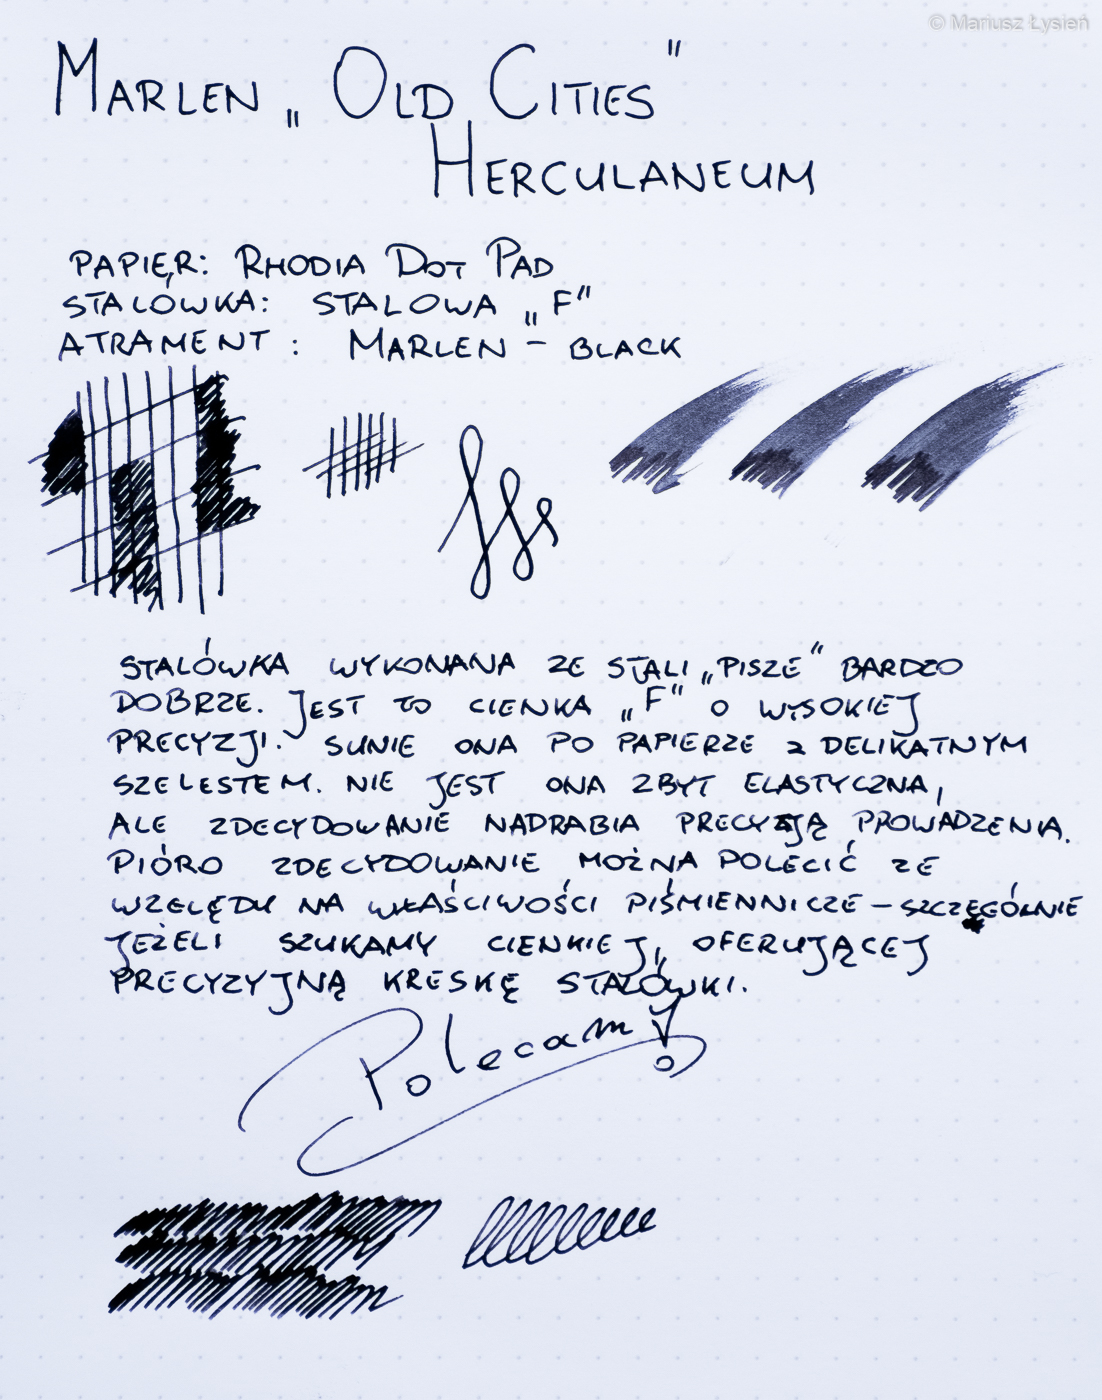 © Mariusz Łysień
MARLEN „OLD CITIES"
HERCULANEUM
PAPIĘR: RHODIA DOT PAD
STALÓWKA: STALOWA „F"
ATRAMENT: MARLEN – BLACK
STALÓWKA WYKONANA ZE STALI „PISZE" BARDZO
DOBRZE. JEST TO CIENKA „F" O WYSOKIEJ
PRECYZJI. SUNIE ONA PO PAPIERZE Z DELIKATNYM
SZELESTEM. NIE JEST ONA ZBYT ELASTYCZNA,
ALE ZDECYDOWANIE NADRABIA PRECYZJĄ PROWADZENIA.
PIÓRO ZDECYDOWANIE MOŻNA POLECIĆ ZE
WZGLĘDU NA WŁAŚCIWOŚCI PIŚMIENNICZE – SZCZEGÓLNIE
JEŻELI SZUKAMY CIENKIEJ, OFERUJĄCEJ
PRECYZYJNĄ KRESKĘ STALÓWKI.
Polecam!